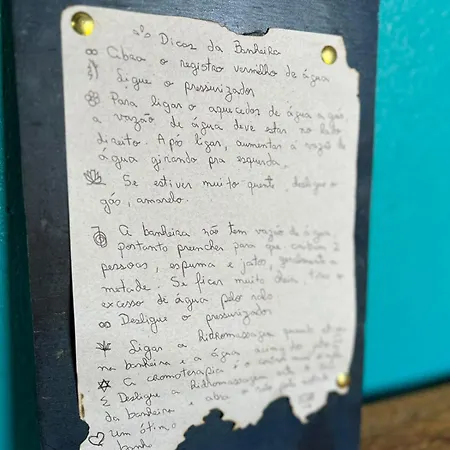 Dicas da Banheira
Abra o registro vermelho de água
Ligue o pressurizador
Para ligar o aquecedor de água a gás
a vazão de água deve estar no lado
direito. Após ligar, aumentar a vazão de
água girando pra esquerda.
Se estiver muito quente, desligue o
gás, amarelo.
A banheira não tem vazão de água
portanto preencher para que caibam 2
pessoas, espuma e jatos, geralmente a
metade. Se ficar muito cheia, tire o
excesso de água pelo ralo
Desligue o pressurizador
Ligar a Hidromassagem quando
na banheira e a água acima
A cromoterapia é o controle
Desligue a Hidromassagem
da banheira e abra o ralo pela
um ótimo
banho